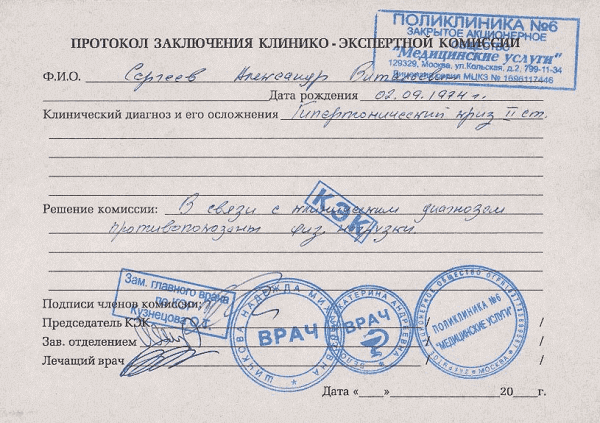 ПОЛИКЛИНИКА №6
ЗАКРЫТОЕ АКЦИОНЕРНОЕ
ОБЩЕСТВО
"Медицинские услуги"
129329, Москва, ул.Кольская, д.2, 799-11-34
ПРОТОКОЛ ЗАКЛЮЧЕНИЯ КЛИНИКО - ЭКСПЕРТНОЙ КОМИССИИ
Ф.И.О. Сергеев Александр Витальевич
Дата рождения 02.09.1974 г.
Клинический диагноз и его осложнения Гипертонический криз II ст.
КЭК
Решение комиссии: В связи с клиническим диагнозом
противопоказаны физ нагрузки.
Зам. главного врача
по КЭР
Кузнецова О.Г.
Подписи членов комиссии:
Председатель КЭК / /
Зав. отделением / /
Лечащий врач / /
НАДЕЖДА
ВРАЧ
ЕКАТЕРИНА АНДРЕЕВНА
ВРАЧ
АКЦИОНЕРНОЕ ОБЩЕСТВО
ПОЛИКЛИНИКА №6
"МЕДИЦИНСКИЕ УСЛУГИ"
МОСКВА
Дата «___» ____________ 20___г.